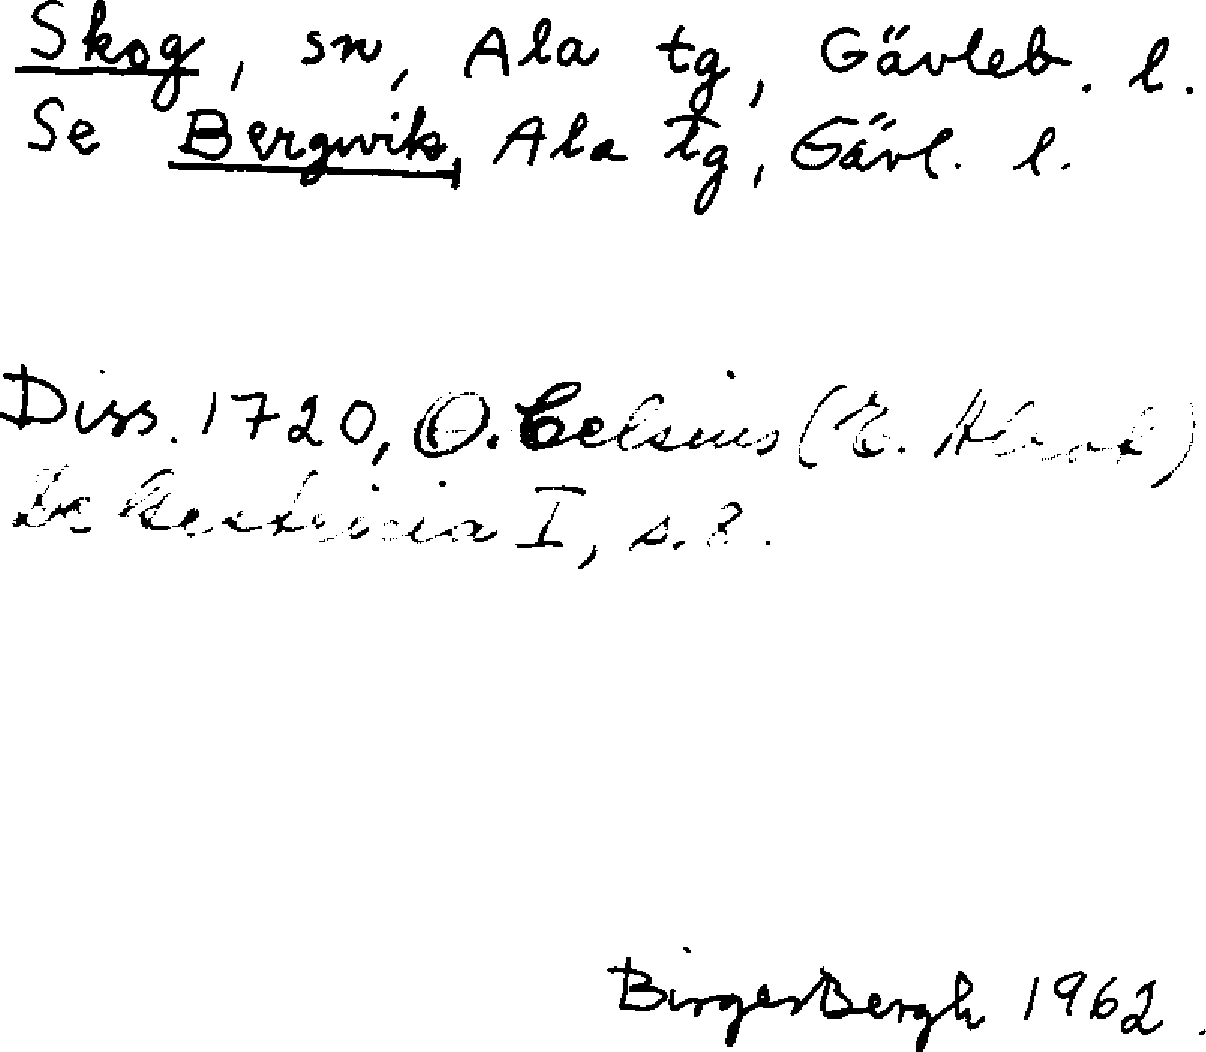 Skog, sn, Ala tg, Gävleb. l.
Se Bergwik, Ala tg, Gävl. l.
Diss. 1720, O. Celsius (E.
De Gestricia I, s. 8.
Birger Bergh 1962.